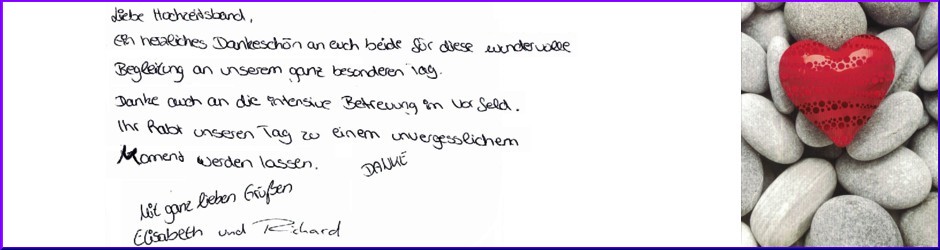 Liebe Hochzeitsband,
Ein herzliches Dankeschön an euch beide für diese wundervolle
Begleitung an unserem ganz besonderen Tag.
Danke auch an die intensive Betreuung im Vorfeld.
Ihr habt unseren Tag zu einem unvergesslichem
Moment werden lassen.
DANKE
Mit ganz lieben Grüßen
Elisabeth und Richard